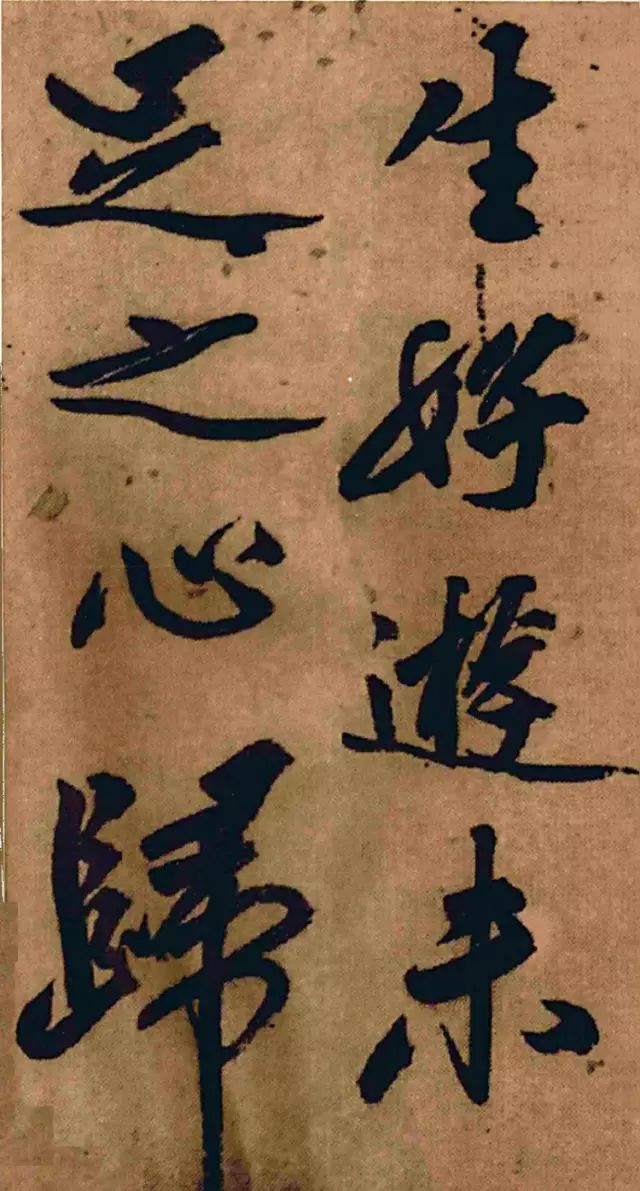 生好遊未
足之心歸